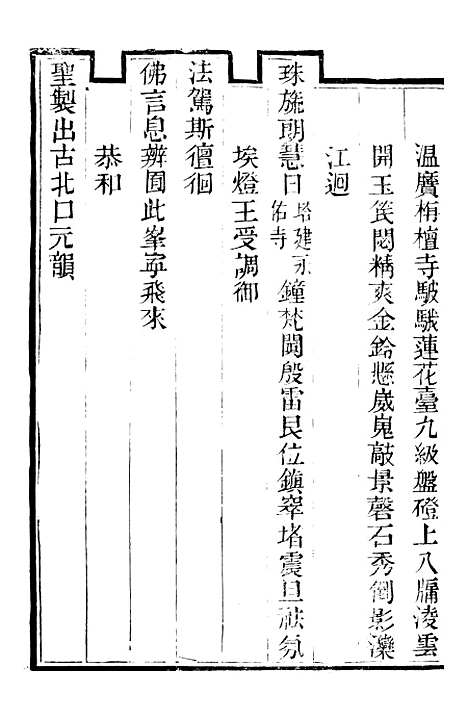 溫賡栴檀寺駊騀蓮花臺九級盤磴上八牖凌雲
開玉篌悶精爽金鈴懸嵗嵬敲景磬石秀倒影灤
江迴
珠旒朗慧日塔建永佑寺鐘梵聞殷雷艮位鎮窣堵震旦祓氛
埃燈王受調御
法駕斯徸徊
佛言息辨囿此峯寧飛來
恭和
聖製出古北口元韻